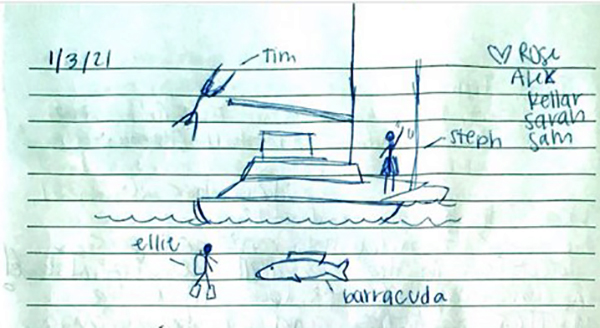 1/3/21
Tim
♡ Rose
Alex
Kellar
Sarah
Sam
steph
ellie
barracuda